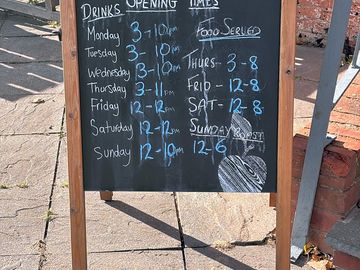 DRINKS OPENING TIMES
Monday 3-10pm
Tuesday 3-10pm
Wednesday 3-10pm
Thursday 3-11pm
Friday 12-12pm
Saturday 12-12pm
Sunday 12-10pm
FOOD SERVED
THURS- 3-8
FRID- 12-8
SAT- 12-8
SUNDAY ROAST
12-6